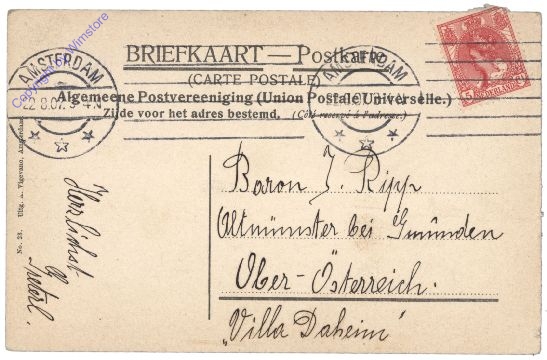 Copyright Wimstore
BRIEFKAART — Postkarte
(CARTE POSTALE)
Algemeene Postvereeniging (Union Postale Universelle.)
Zijde voor het adres bestemd. (Côté réservé à l'adresse.)
AMSTERDAM
22 8.07. 3-4 N
AMSTERDAM
NEDERLAND
5
Baron J. Ripp
Altmünster bei Gmunden
Ober-Österreich.
"Villa Daheim"
Herzlichst
No. 23. Uitg. A. Vigevano, Amsterdam